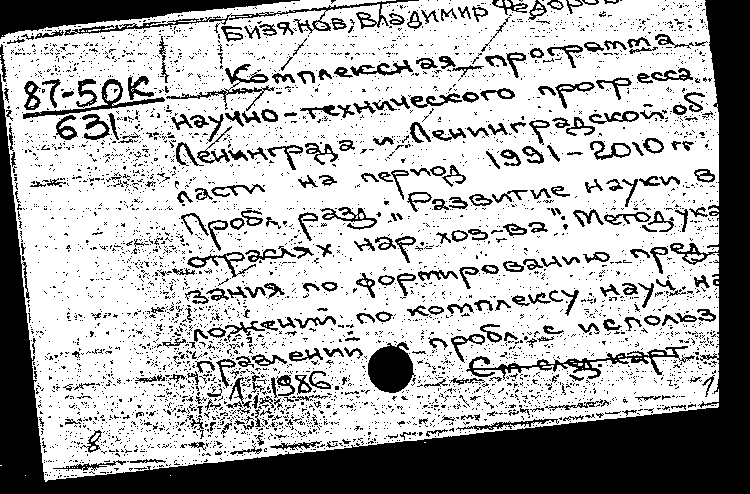 Бизянов, Владимир Федоров
87-50К
631
Комплексная программа
научно-технического прогресса
Ленинграда и Ленинградской об
ласти на период 1991-2010 гг.
Пробл. разд. „Развитие науки в
отраслях нар. хоз-ва": Метод. ука
зания по формированию пред-
ложений по комплексу науч. на
правлений пробл. с использ
См след карт
1, 1986
8